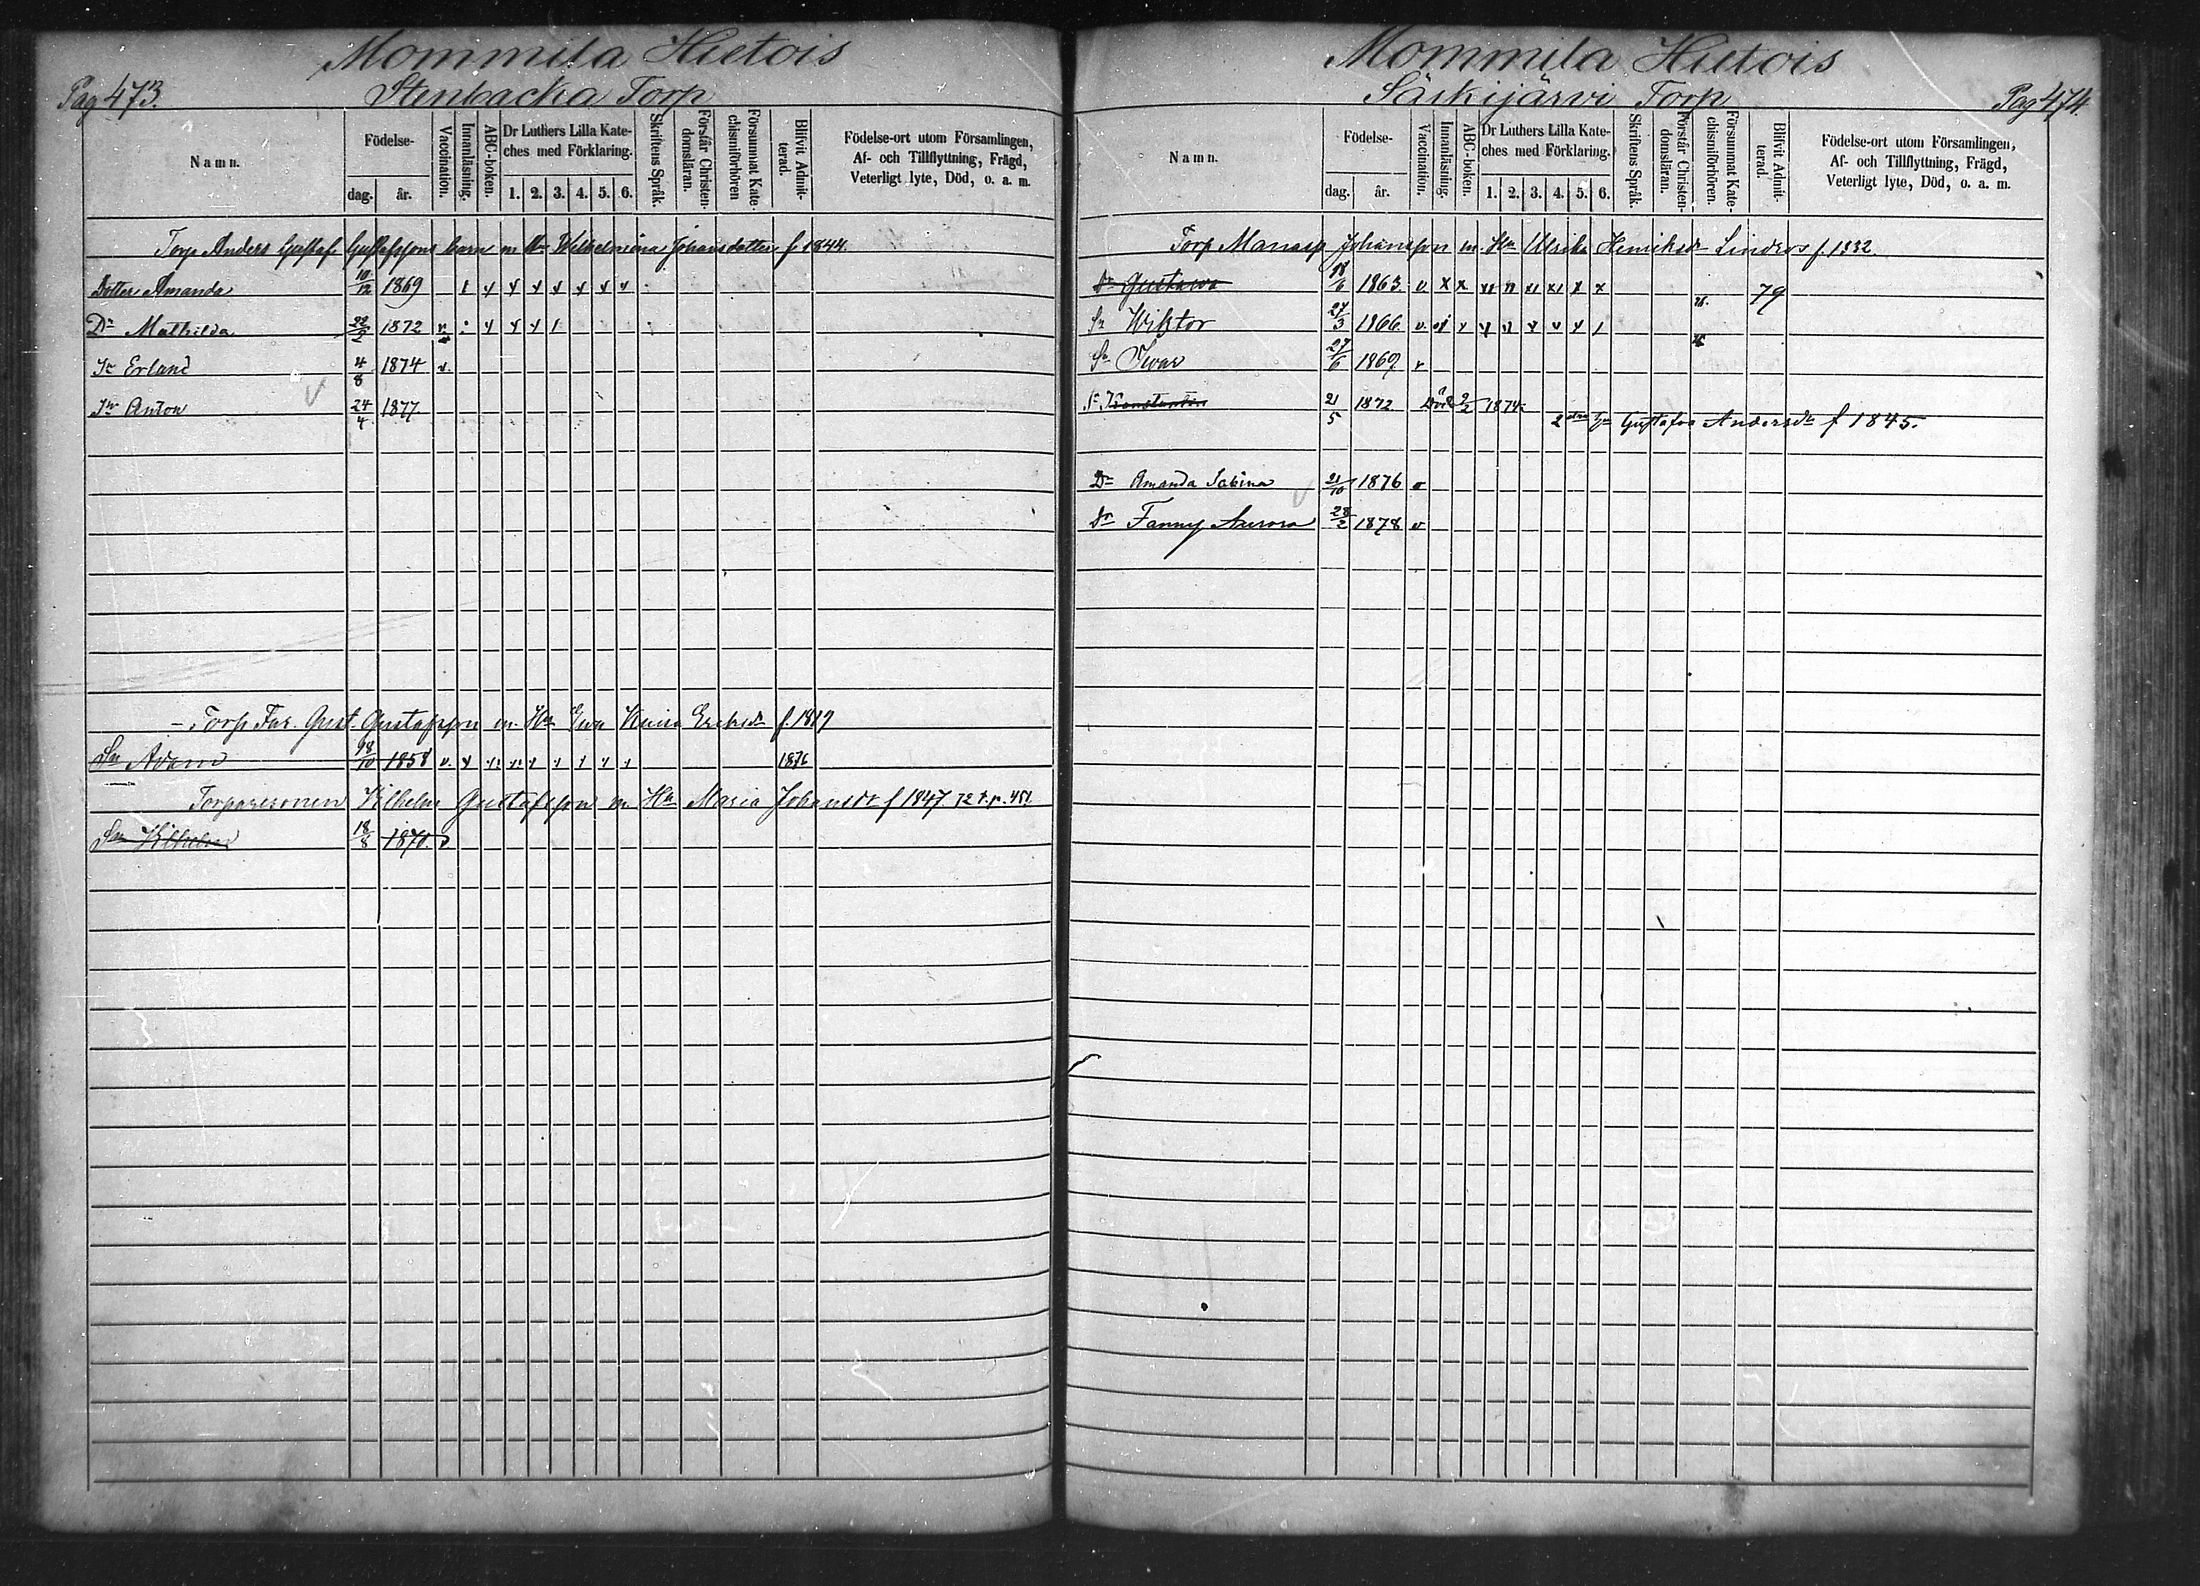 Mommila Hietois
Pag 473.
Stenbacka Torp
Namn.
Födelse-
dag. år.
Vaccination.
Innanläsning.
ABC-boken.
Dr Luthers Lilla Kate-
ches med Förklaring.
1. 2. 3. 4. 5. 6.
Skriftens Språk.
Förstår Christen-
domsläran.
Försummat Kate-
chismiförhören
Blifvit Admit-
terad.
Födelse-ort utom Församlingen,
Af- och Tillflyttning, Frägd,
Veterligt lyte, Död, o. a. m.
Torp Anders Gustaf Gustafssons barn m Hu Wilhelmina Johansdotter f 1844.
Dotter Amanda 10/12 1869
Dr Mathilda 22/2 1872 v
Sn Erland 4/8 1874 v.
Sn Anton 24/4 1877
Torp Far. Gust. Gustafsson m. Hu Ewa Erichsdr f. 1819
Sn Adam 1858 v. 1876
Torparesonen Vilhelm Gustafsson m Hu Maria Johansdr f 1847 72 t. p. 451.
Sn Vilhelm 18/8 1870. v
Mommila Hietois
Särkijärvi Torp
Pag 474.
Namn.
Födelse-
dag. år.
Vaccination.
Innanläsning.
ABC-boken.
Dr Luthers Lilla Kate-
ches med Förklaring.
1. 2. 3. 4. 5. 6.
Skriftens Språk.
Förstår Christen-
domsläran.
Försummat Kate-
chismiförhören.
Blifvit Admit-
terad.
Födelse-ort utom Församlingen,
Af- och Tillflyttning, Frägd,
Veterligt lyte, Död, o. a. m.
Torp Manass Johansson m. Hu Ulrika Henriksdr Lindros f. 1832.
Dr Gustawa 18/6 1863. v. 79
Sn Wiktor 27/3 1866 v.
Sn Iwar 27/6 1869. v
Sn Konstantin 21/5 1872 Död 2/2 1874.
2dra Hu Gustafva Andersdr f 1845.
Dr Amanda Sabina 21/10 1876 v
Dr Fanny Aurora 28/2 1878 v